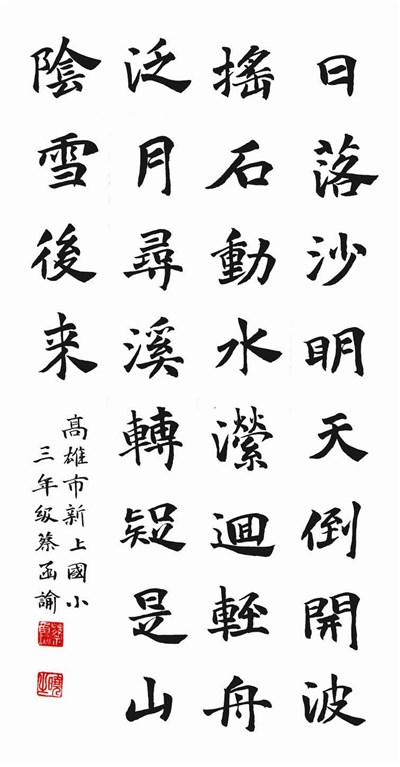 日落沙明天倒開波
搖石動水瀠迴輕舟
泛月尋溪轉疑是山
陰雪後来
高雄市新上國小
三年級蔡函諭